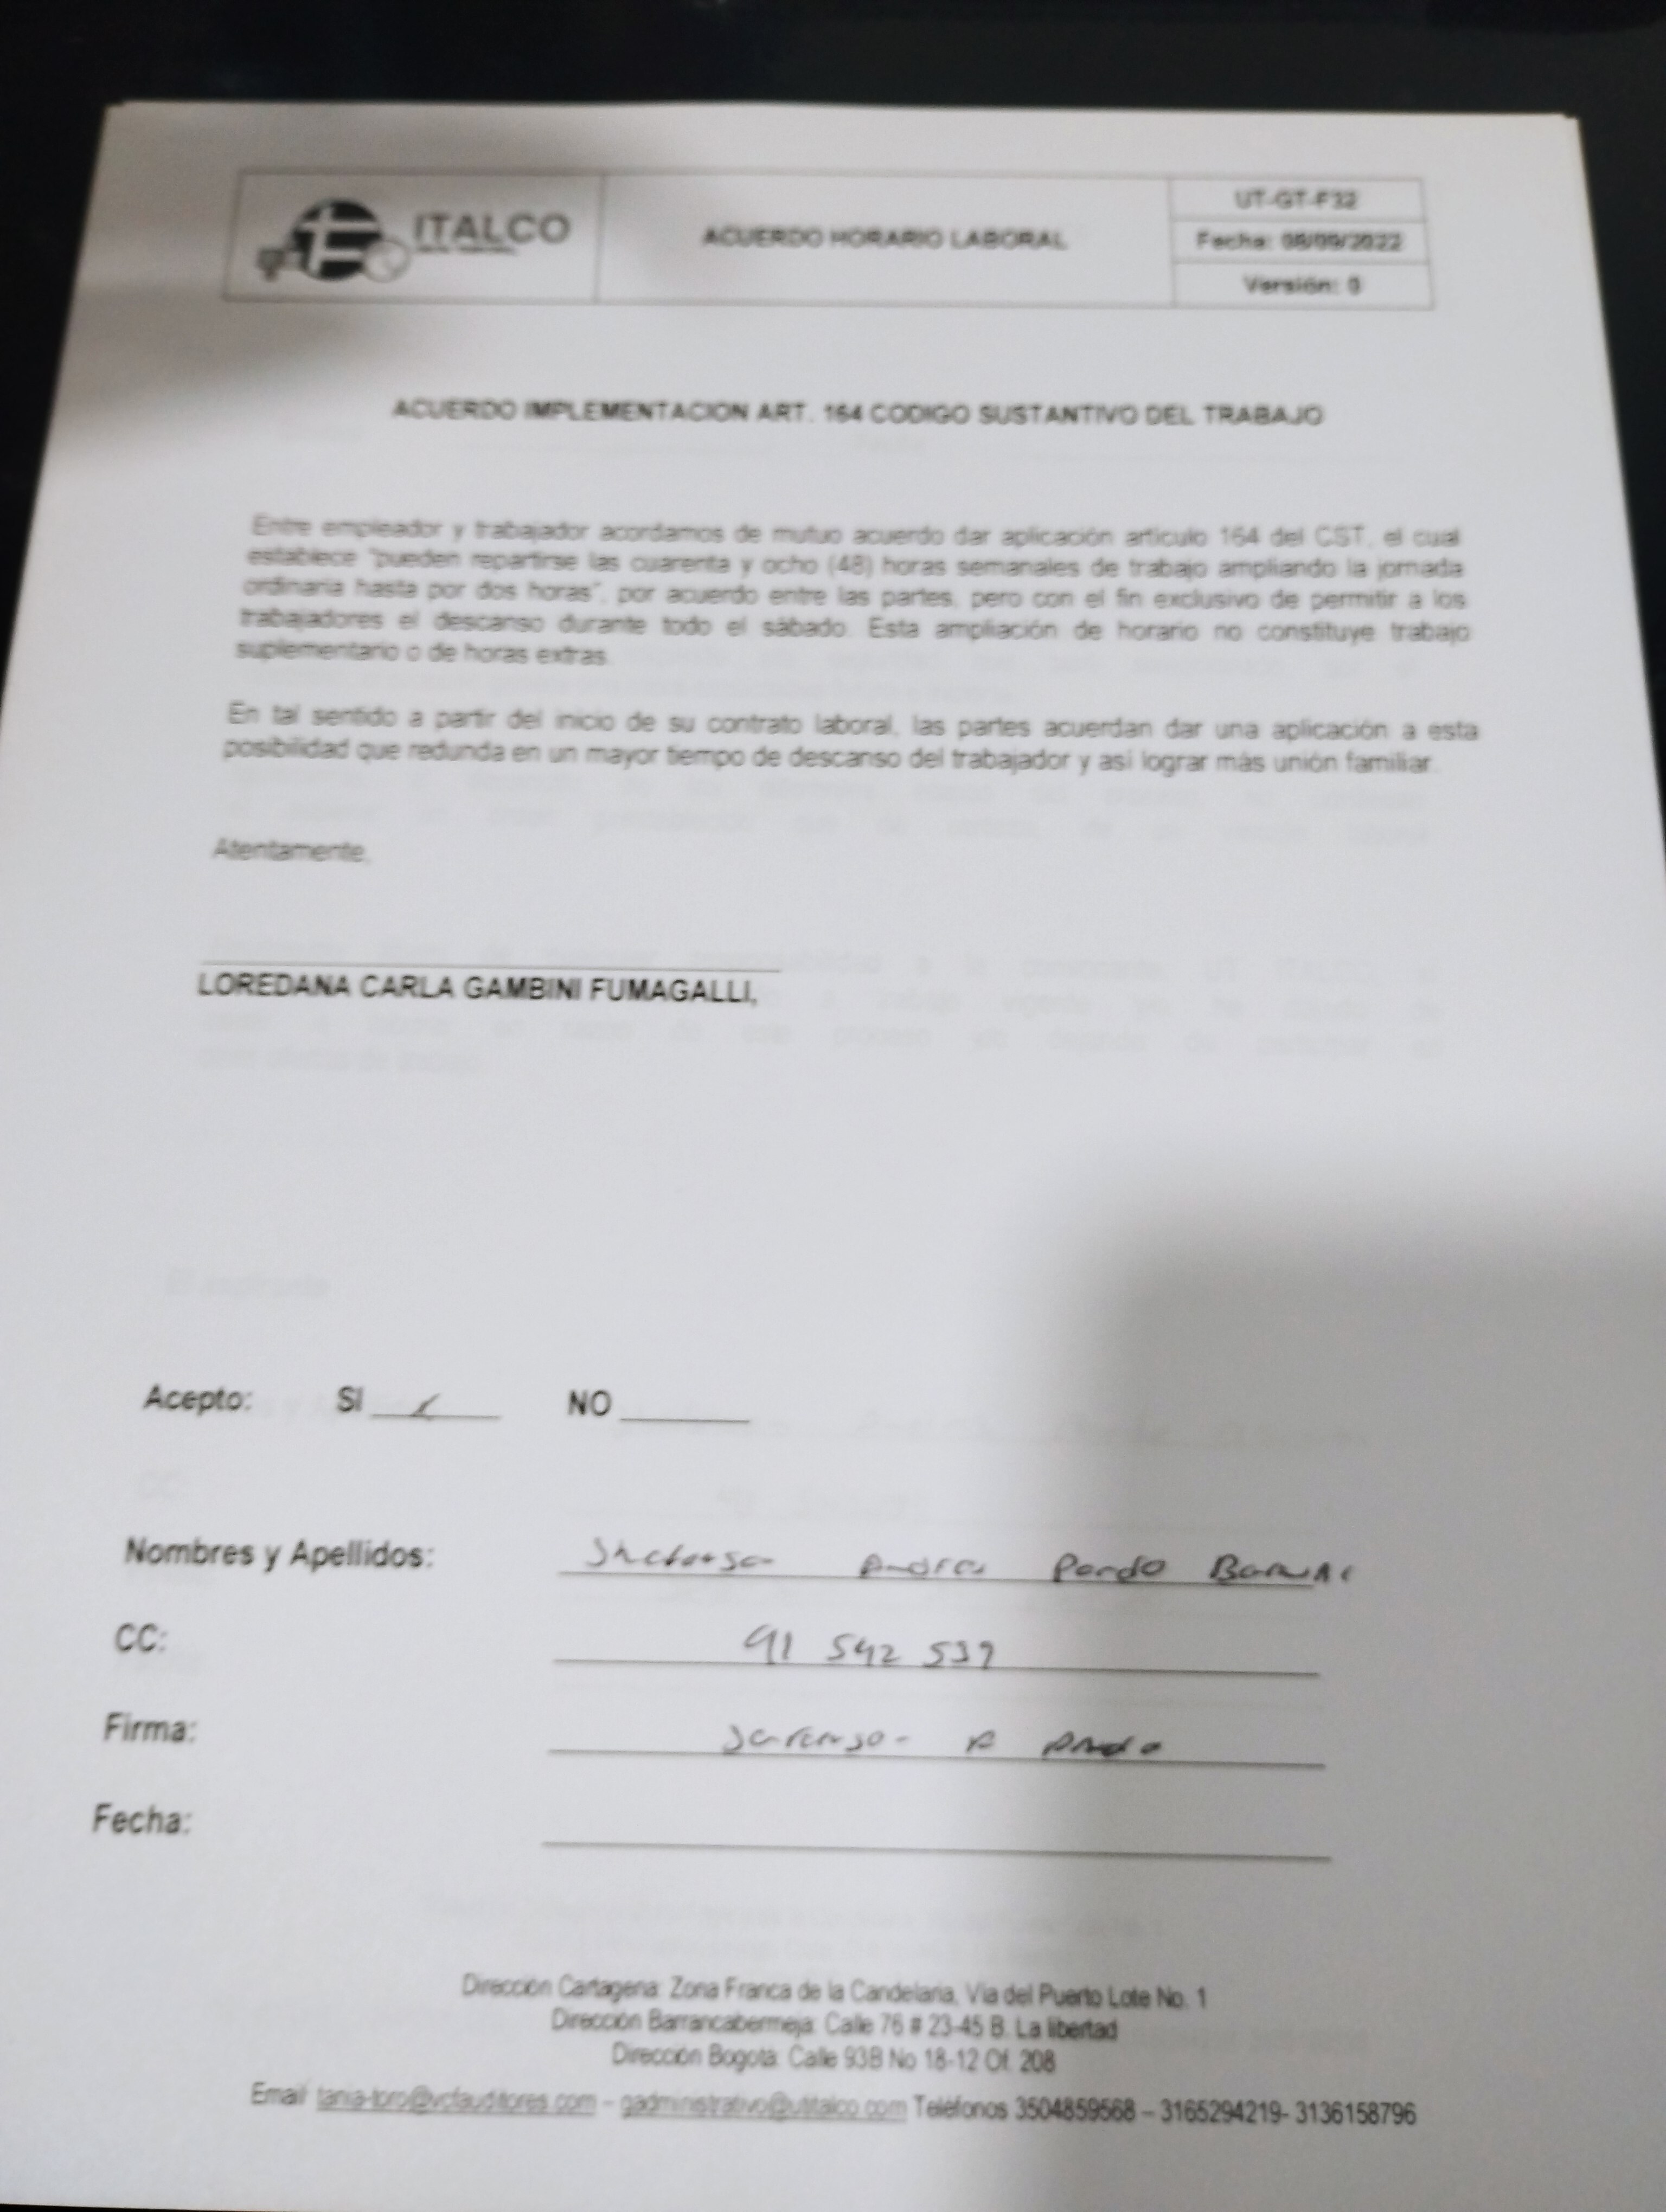 ITALCO
ACUERDO HORARIO LABORAL
UT-GT-F32
Fecha: 08/09/2022
Versión: 0
ACUERDO IMPLEMENTACION ART. 164 CODIGO SUSTANTIVO DEL TRABAJO
Entre empleador y trabajador acordamos de mutuo acuerdo dar aplicación articulo 164 del CST, el cual
establece "pueden repartirse las cuarenta y ocho (48) horas semanales de trabajo ampliando la jornada
ordinaria hasta por dos horas", por acuerdo entre las partes, pero con el fin exclusivo de permitir a los
trabajadores el descanso durante todo el sábado. Esta ampliación de horario no constituye trabajo
suplementario o de horas extras.
En tal sentido a partir del inicio de su contrato laboral, las partes acuerdan dar una aplicación a esta
posibilidad que redunda en un mayor tiempo de descanso del trabajador y así lograr más unión familiar.
Atentamente,
LOREDANA CARLA GAMBINI FUMAGALLI,
Acepto: SI NO
Nombres y Apellidos: Andres Pardo
CC: 91 542 539
Firma: A Pardo
Fecha:
Dirección Cartagena: Zona Franca de la Candelaria, Vía del Puerto Lote No. 1
Dirección Barrancabermeja: Calle 76 # 23-45 B. La libertad
Dirección Bogotá: Calle 93B No 18-12 Of. 208
Email tania-toro@vcfauditores.com – gadministrativo@utitalco.com Teléfonos 3504859568 – 3165294219- 3136158796